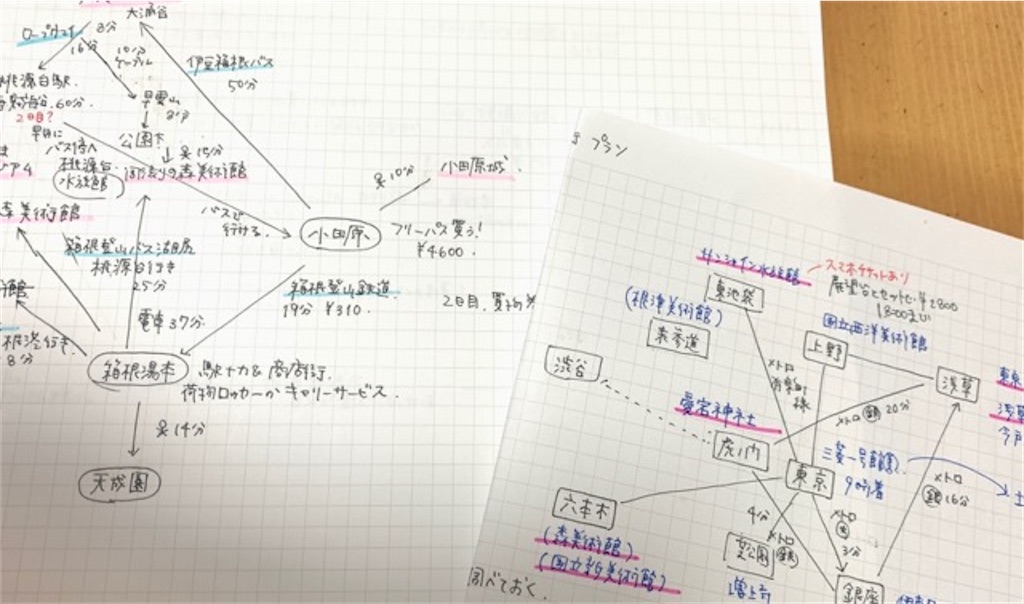 大涌谷
ロープウェイ
8分
16分
10分
ケーブル
早雲山
桃源台駅
60分
2日目?
公園下
バス停へ
桃源台
水族館
15分
森美術館
伊豆箱根バス
50分
10分
小田原城
バスで
行ける。
小田原
フリーパス買う!
¥4600
箱根登山バス湖尻
桃源台行き
25分
電車37分
箱根登山鉄道
19分 ¥310
2日目、買物
8分
箱根湯本
駅ナカ & 商店街
荷物ロッカーかキャリーサービス
14分
天成園
プラン
サンシャイン水族館
スマホチケットあり
展望台とセットで
18:00まで
東池袋
(根津美術館)
表参道
国立西洋美術館
上野
渋谷
浅草
メトロ
有楽町
線
愛宕神社
メトロ 銀 20分
虎ノ門
三菱一号館
東京
メトロ
銀 16分
六本木
(森美術館)
(国立新美術館)
4分
メトロ
芝公園
増上寺
メトロ
3分
銀座
調べておく。